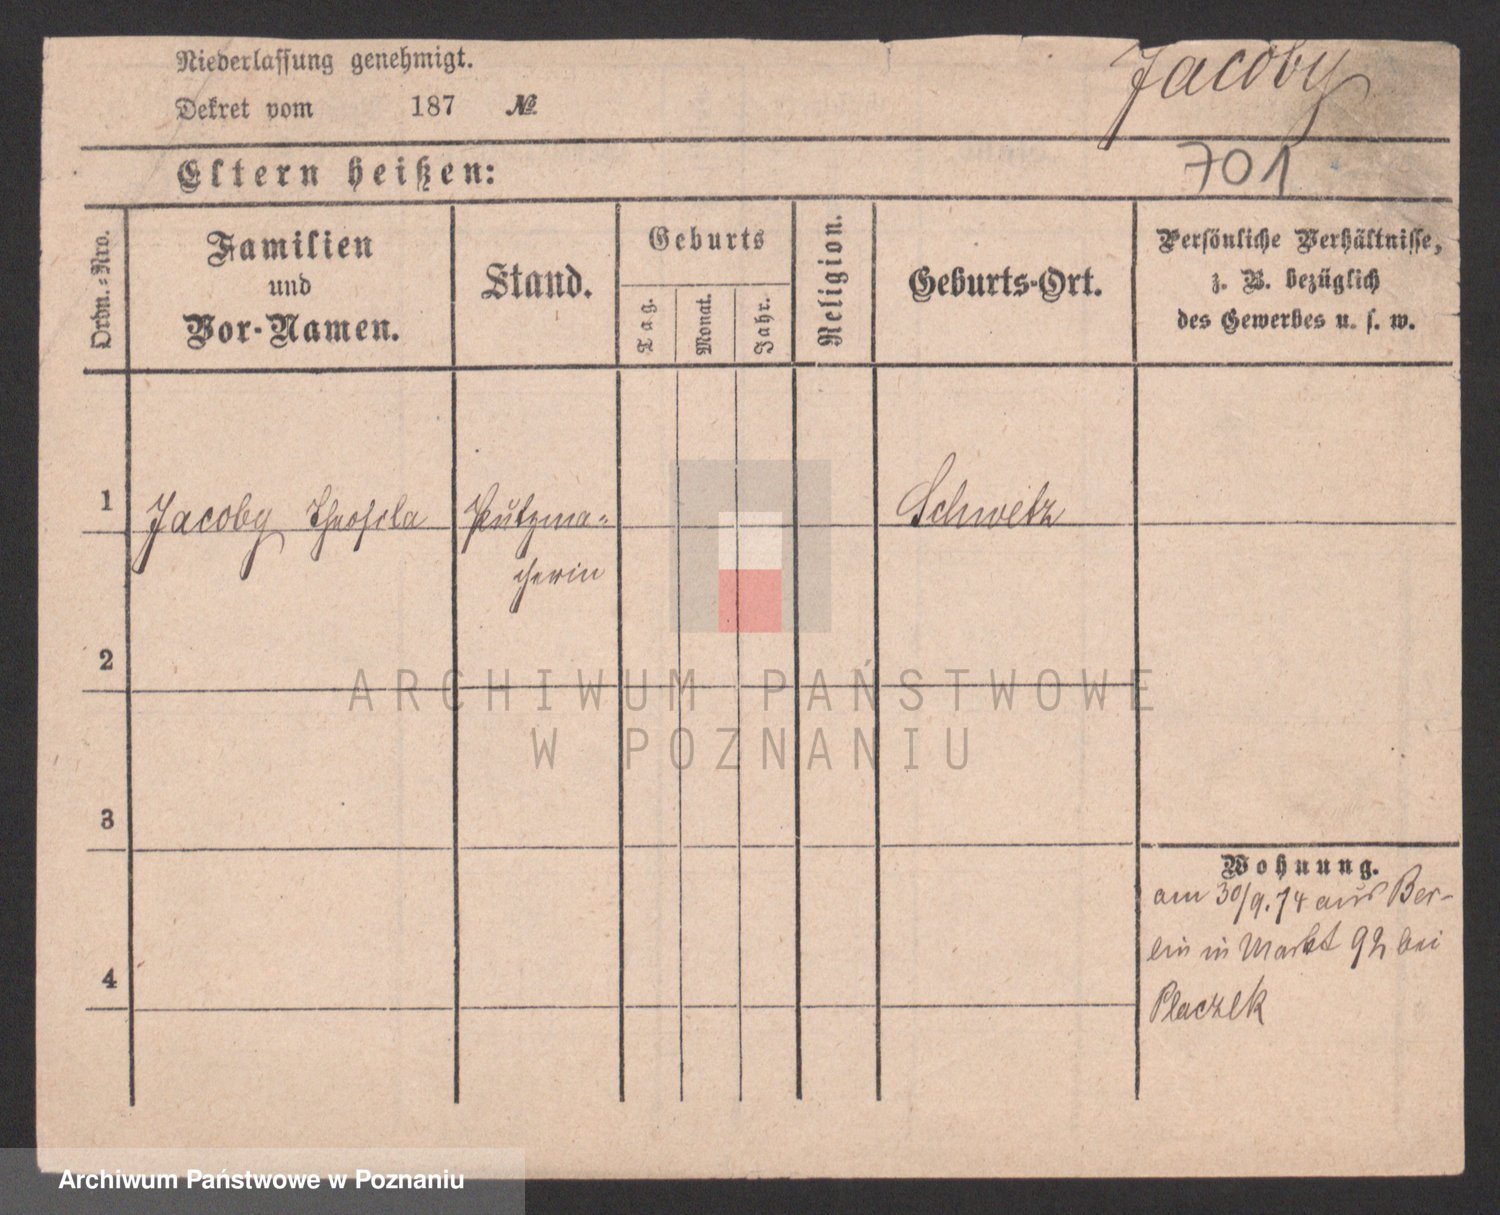 Niederlassung genehmigt.
Jacoby
Dekret vom 187 №
Eltern heißen:
701
Ordn.-Nro.
Familien
und
Vor-Namen.
Stand.
Geburts
Tag.
Monat.
Jahr.
Religion.
Geburts-Ort.
Persönliche Verhältnisse,
z. B. bezüglich
des Gewerbes u. s. w.
1 Jacoby Theofila Putzma- Schwetz
cherin
2
ARCHIWUM PAŃSTWOWE
W POZNANIU
3
Wohnung.
am 30/9.74 aus Ber-
lin in Markt 92 bei
Placzek
4
Archiwum Państwowe w Poznaniu